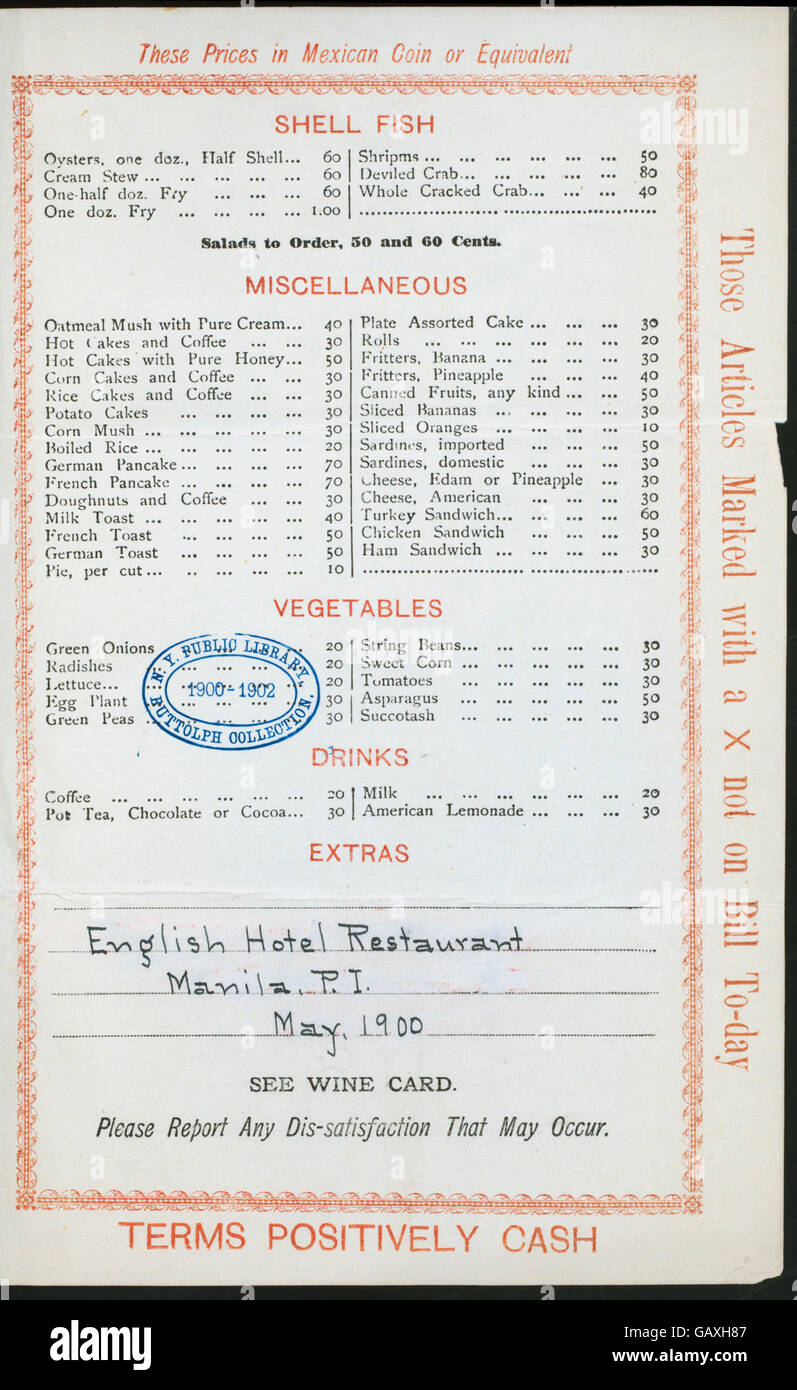 These Prices in Mexican Coin or Equivalent
SHELL FISH
Oysters, one doz., Half Shell... 60
Cream Stew ... ... ... ... ... 60
One-half doz. Fry ... ... ... 60
One doz. Fry ... ... ... ... 1.00
Shripms ... ... ... ... ... ... 50
Deviled Crab... ... ... ... ... 80
Whole Cracked Crab... ... ... 40
Salads to Order, 50 and 60 Cents.
MISCELLANEOUS
Oatmeal Mush with Pure Cream... 40
Hot Cakes and Coffee ... ... 30
Hot Cakes with Pure Honey... 50
Corn Cakes and Coffee ... ... 30
Rice Cakes and Coffee ... ... 30
Potato Cakes ... ... ... ... 30
Corn Mush ... ... ... ... ... 30
Boiled Rice ... ... ... ... ... 20
German Pancake ... ... ... ... 70
French Pancake ... ... ... ... 70
Doughnuts and Coffee ... ... 30
Milk Toast ... ... ... ... ... 40
French Toast ... ... ... ... 50
German Toast ... ... ... ... 50
Pie, per cut ... ... ... ... ... 10
Plate Assorted Cake ... ... ... 30
Rolls ... ... ... ... ... ... 20
Fritters, Banana ... ... ... ... 30
Fritters, Pineapple ... ... ... 40
Canned Fruits, any kind ... ... 50
Sliced Bananas ... ... ... ... 30
Sliced Oranges ... ... ... ... 10
Sardines, imported ... ... ... 50
Sardines, domestic ... ... ... 30
Cheese, Edam or Pineapple ... 30
Cheese, American ... ... ... 30
Turkey Sandwich... ... ... ... 60
Chicken Sandwich ... ... ... 50
Ham Sandwich ... ... ... ... 30
VEGETABLES
Green Onions 20
Radishes ... ... ... 20
Lettuce... 20
Egg Plant 30
Green Peas 30
String Beans... ... ... ... ... 30
Sweet Corn ... ... ... ... ... 30
Tomatoes ... ... ... ... ... 30
Asparagus ... ... ... ... ... 50
Succotash ... ... ... ... ... 30
N. Y. PUBLIC LIBRARY,
1900-1902
BUTTOLPH COLLECTION.
DRINKS
Coffee ... ... ... ... ... ... 20
Pot Tea, Chocolate or Cocoa... 30
Milk ... ... ... ... ... ... 20
American Lemonade ... ... ... 30
EXTRAS
English Hotel Restaurant
Manila, P.I.
May, 1900
SEE WINE CARD.
Please Report Any Dis-satisfaction That May Occur.
TERMS POSITIVELY CASH
Those Articles Marked with a X not on Bill To-day
alamy stock photo
alamy
a
GAXH87
www.alamy.com